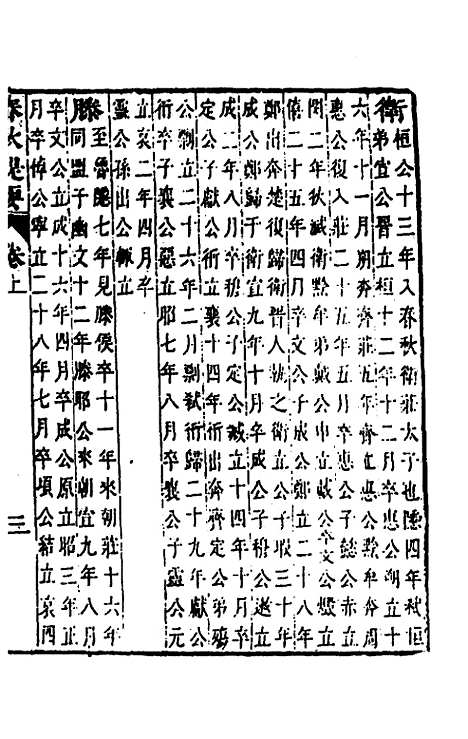 衛桓公十三年入春秋衛莊太子也隱四年弒桓
弟宣公晉立桓十二年十二月卒惠公朔立十
六年十一月朔奔齊莊五年齊立惠公黔牟奔周
惠公復入莊二十五年五月卒惠公子懿公赤立
閔二年狄滅衛黔牟弟戴公申立戴公卒文公燬立
僖二十五年四月卒文公子成公鄭立二十八年
鄭出奔楚復歸衛晉人執之衛立公子瑕三十年
成公鄭歸于衛宣九年十月卒成公子穆公遬立
成二年八月卒穆公子定公臧立十四年十月卒
定公子獻公衎立襄十四年衎出奔齊定公弟殤
公剽立二十六年二月剽弒衎歸二十九年獻公
衎卒子襄公惡立昭七年八月卒襄公子靈公元
立哀二年四月卒
靈公孫出公輒立
滕至魯隱七年見滕侯卒十一年來朝莊十六年
同盟于幽文十二年滕昭公來朝宣九年八月
卒文公立成十六年四月卒成公原立昭三年正
月卒悼公寧立二十八年七月卒頃公結立哀四
卷上
三